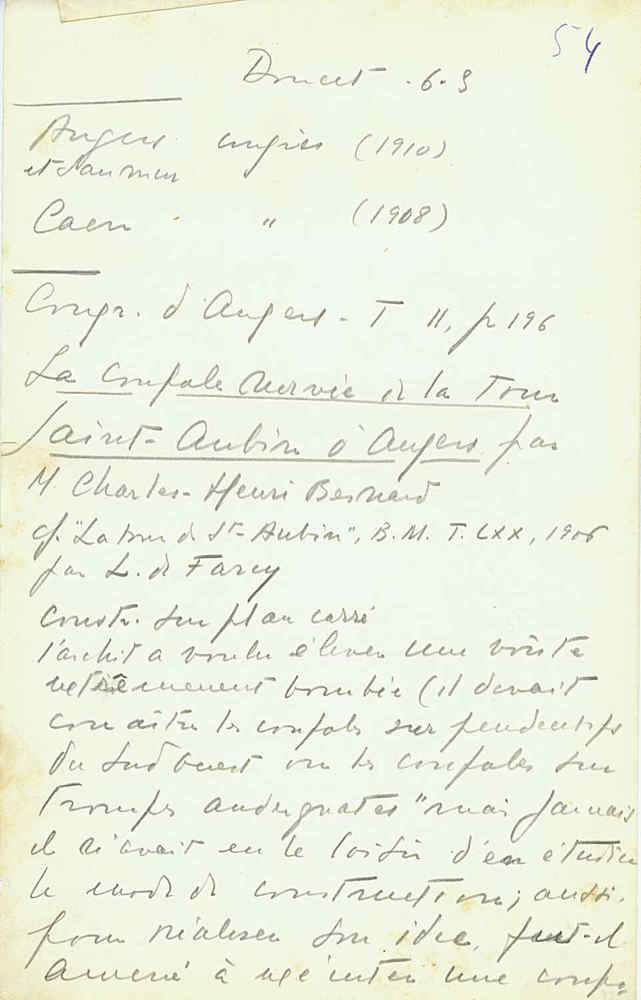 54
Doucet . 6.3
Angers congrès (1910)
et Saumur
Caen " (1908)
Congr. d'Angers - T II, p 196
La Coupole nervée de la Tour
Saint-Aubin à Angers par
M. Charles-Henri Besnard
cf. "La tour de St-Aubin", B.M. T. LXX, 1906
par L. de Farcy
constr. sur plan carré
l'archit a voulu élever une voûte
extrêmement bombée (il devait
connaître les coupoles sur pendentifs
du Sud Ouest ou les coupoles sur
trompes "mais jamais
il n'avait eu le loisir d'en étudier
le mode de construction; aussi,
pour réaliser son idée, fut-il
amené à exécuter une coupo